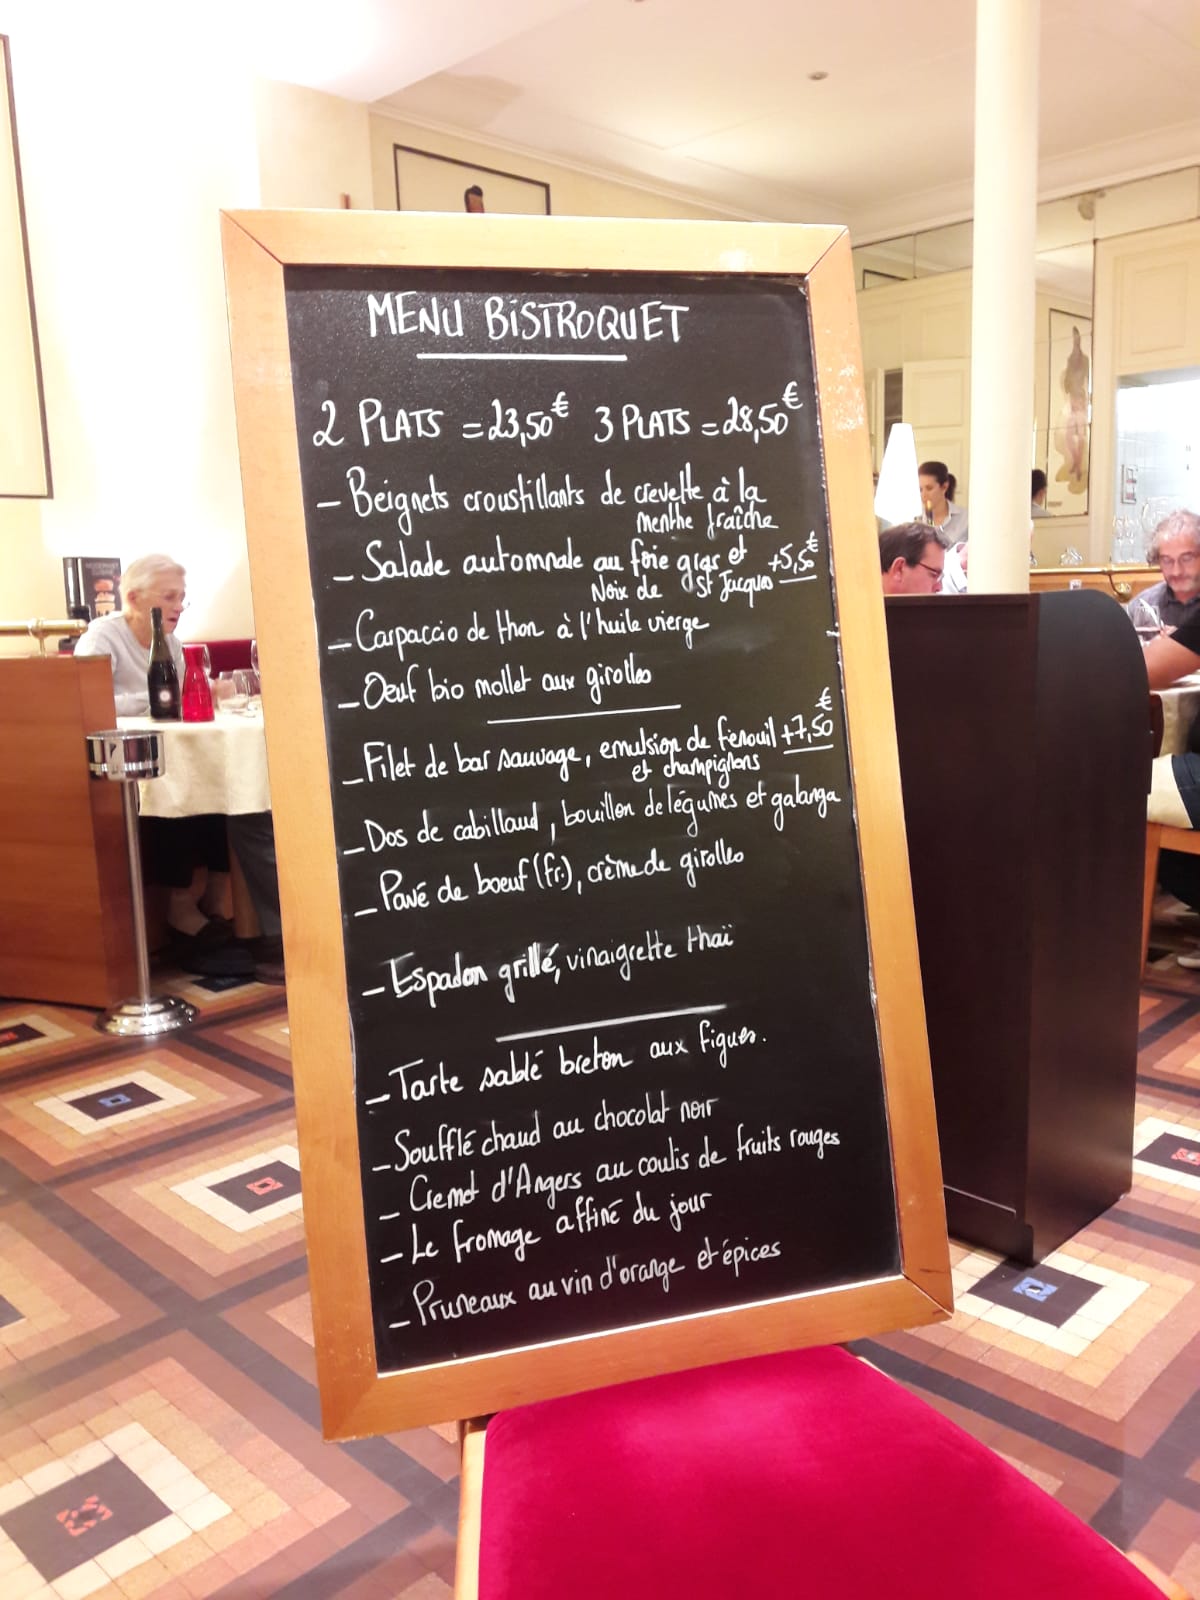 MENU BISTROQUET
2 PLATS = 23,50€ 3 PLATS = 28,50€
- Beignets croustillants de crevette à la
menthe fraîche
- Salade automnale au foie gras et +5,50€
Noix de St Jacques
- Carpaccio de thon à l'huile vierge
- Oeuf bio mollet aux girolles
- Filet de bar sauvage, emulsion de fenouil +7,50€
et champignons
- Dos de cabillaud, bouillon de légumes et galanga
- Pavé de boeuf (fr.), crème de girolles
- Espadon grillé, vinaigrette thaï
- Tarte sablé breton aux figues.
- Soufflé chaud au chocolat noir
- Cremet d'Angers au coulis de fruits rouges
- Le fromage affiné du jour
- Pruneaux au vin d'orange et épices